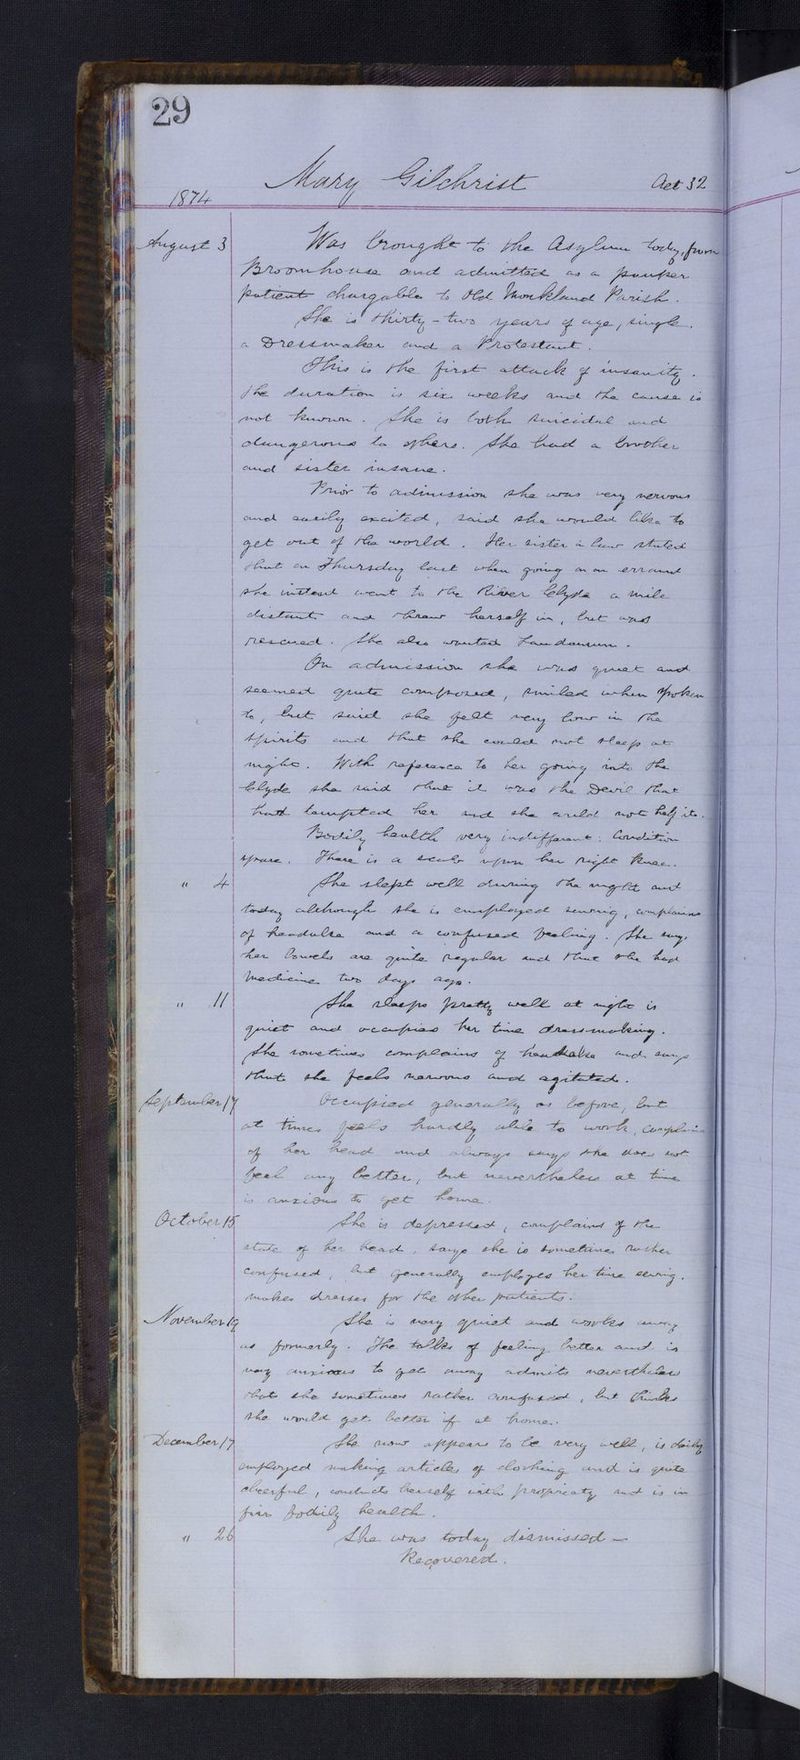 29
Mary Gilchrist Aet 32
1874
August 3 Was brought to the Asylum today, from
Broomhouse and admitted as a pauper
patient chargable to Old Monkland Parish.
She is thirty-two years of age, single.
a Dressmaker and a Protestant.
This is the first attack of insanity.
the duration is six weeks and the cause is
not known. She is both suicidal and
dangerous to others. She had a brother
and sister insane.
Prior to admission she was very nervous
and easily excited, said she would like to
get out of the world. Her sister in law stated
that on Thursday last when going on an errand
she instead went to the River Clyde a mile
distant and threw herself in, but was
rescued. She also wanted Laudanum.
On admission she was quiet and
seemed quite composed, smiled when spoken
to, but said she felt very low in the
spirits and that she could not sleep at
night. With reference to her going into the
Clyde she said that it was the Devil that
had tempted her and she could not help it.
Bodily health very indifferent. Condition
spare. There is a scab upon her right knee.
" 4 She slept well during the night and
today although she is employed sewing, complains
of headake and a confused feeling. She says
her bowels are quite regular and that she had
medicine two days ago.
" 11 She sleeps pretty well at night is
quiet and occupies her time dressmaking.
She sometimes complains of headake and says
that she feels nervous and agitated.
September 17 Occupied generally as before, but
at times feels hardly able to work, complains
of her head and always says she does not
feel any better, but nevertheless at time
is anxious to get home.
October 15 She is depressed, complains of the
state of her head, says she is sometimes rather
confused, but generally employes her time sewing.
makes dresses for the other patients.
November 19 She is very quiet and works away
as formerly. She talks of feeling better and is
very anxious to get away admits nevertheless
that she sometimes rather confused, but thinks
she would get better if at home.
December 17 She now appears to be very well, is daily
employed making articles of clothing and is quite
cheerful, conducts herself with propriety and is in
fair bodily health.
" 26 She was today dismissed—
Recovered.